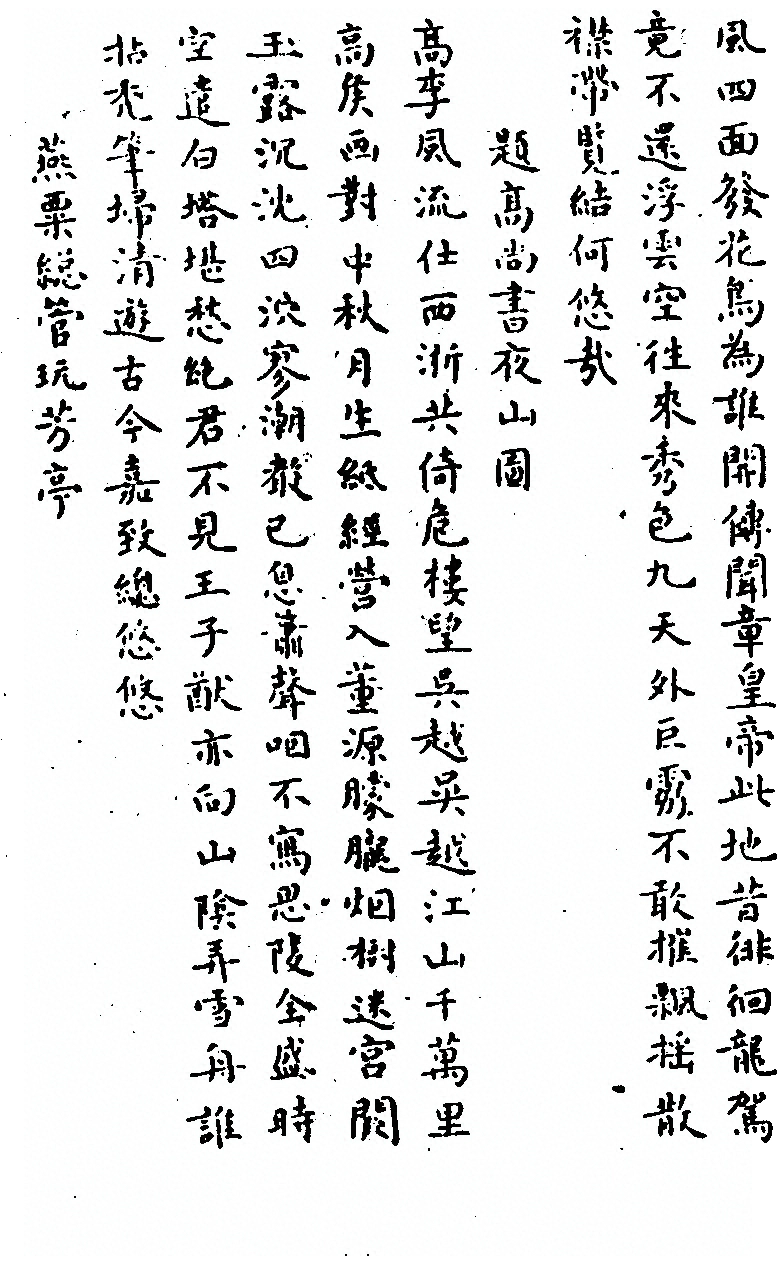 風四面發花鳥為誰開傳聞章皇帝此地昔徘徊龍駕
竟不還浮雲空往來秀色九天外巨靈不敢摧飄摇散
襟帶覽結何悠哉
題髙尚書夜山圖
髙李風流仕西浙共倚危樓望吳越吳越江山千萬里
高矦画對中秋月生紙經營入董源朦朧烟樹迷宫闕
玉露沉沈四泬寥潮聲已息肅聲咽不寫思陵全盛時
空遣白塔堪愁絶君不見王子猷亦向山陰弄雪舟誰
拈秃筆埽清遊古今嘉致總悠悠
燕粟總管玩芳亭